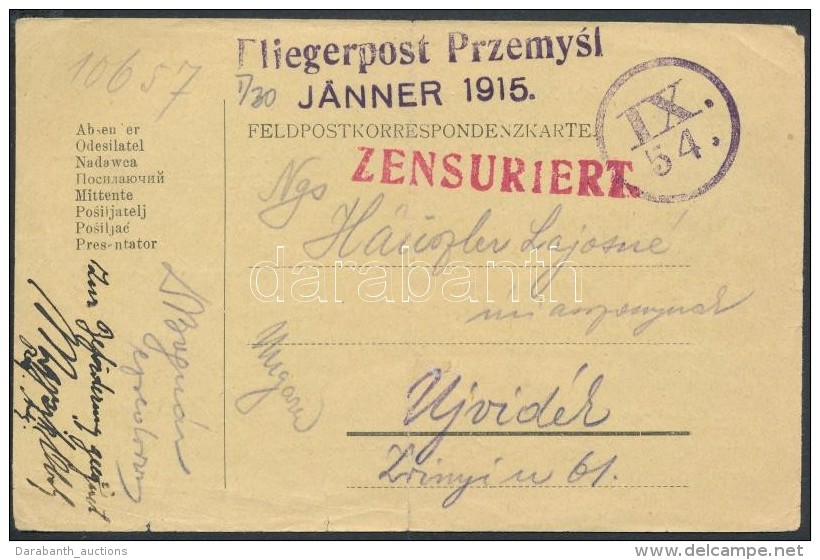 10657
Fliegerpost Przemyśl
I/30 JÄNNER 1915.
IX.
54.
FELDPOSTKORRESPONDENZKARTE
ZENSURIERT.
Absender
Odesilatel
Nadawca
Посилаючий
Mittente
Pošiljatelj
Pošiljač
Presentator
Ngs
Häuszler Lajosné
darabanth
Ungarn
Ujvidék
Zrinyi u 61.
Zur Beförderung geeignet
Darabanth_auctions
delcampe.net